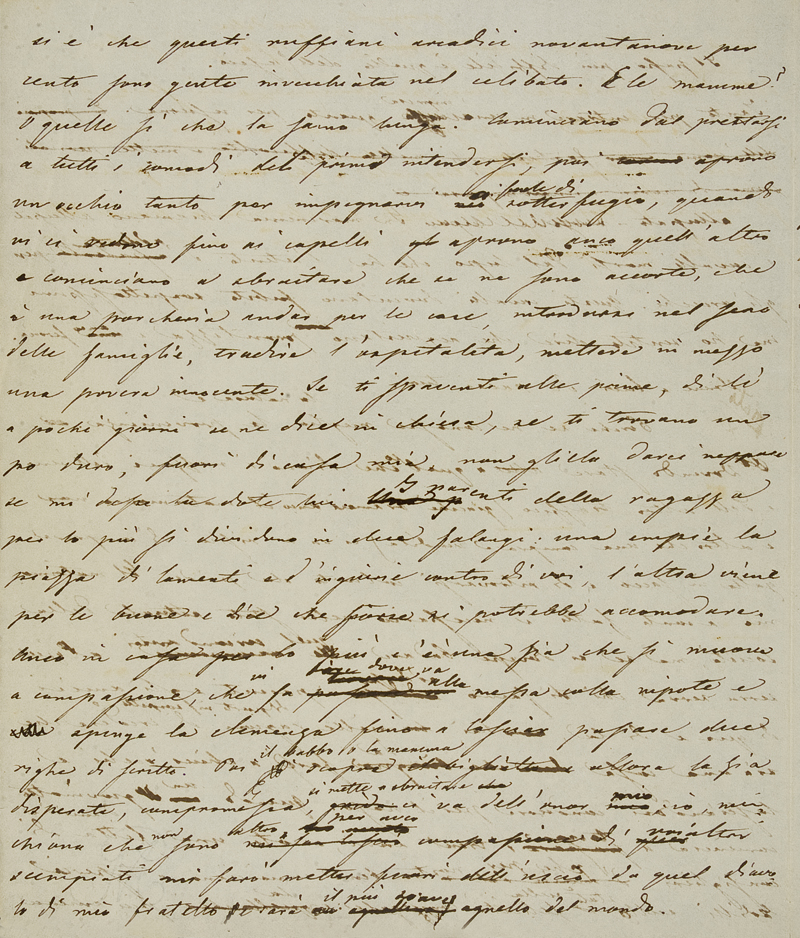 si è che questi ruffiani arcadici novantanove per
cento sono gente invecchiata nel celibato. E le mamme?
O quelle sì che la sanno lunga. Cominciano dal prestarsi
a tutti i comodi del primo intendersi, poi aprono
un occhio tanto per impegnarvi a furia di sotterfugio, quando
vi ci fino ai capelli aprono anco quell'altro
e cominciano a sbraitare che se ne sono accorte, che
è una porcheria andar per le case, introdursi nel seno
delle famiglie, tradire l'ospitalità, mettere in mezzo
una povera innocente. Se ti spaventi alle prime, di lì
a pochi giorni se ne dice in chiesa, se ti trovano un
po duro, fuori di casa mia non gliela darei neppure
se mi desse la dote lui I parenti della ragazza
per lo più si dividono in due falangi: una empie la
piazza di lamenti e d'ingiurie contro di voi l'altra viene
per le buone e dice che forse si potrebbe accomodare.
Anco in casa per lo più c'è una zia che si muove
a compassione, che vi fa dove va alla messa colla nipote e
spinge la clemenza fino a lasciar passare due
righe di scritto. Poi il babbo o la mamma scopre allora la zia
disperata, compromessa, si mette a sbraitare che ci va dell'onor mio io, mi
chiava che non sono altro per avere compassione di voi altri
scempiati mi farò metter fuori dell'uscio da quel diavo
lo di mio fratello il più agnello del mondo.